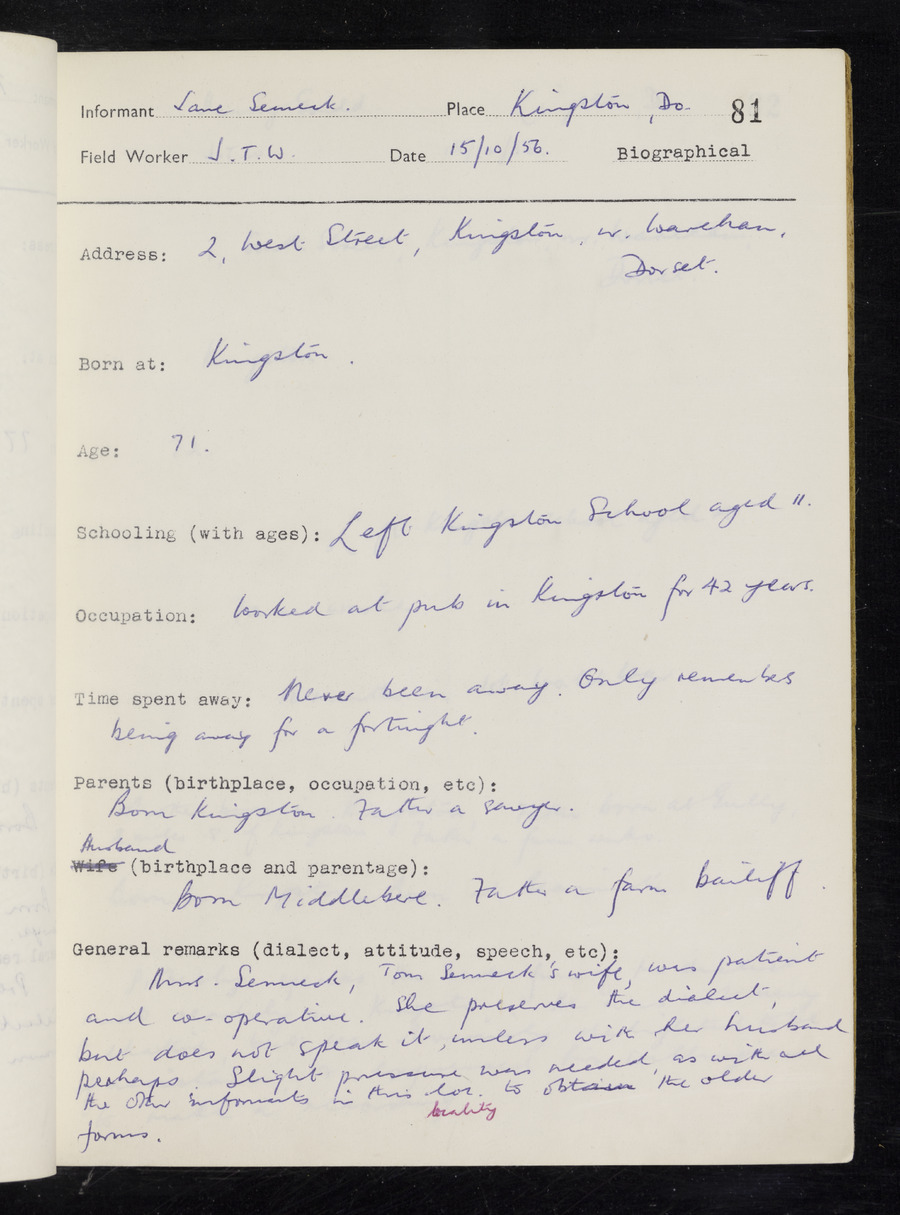 Informant Jane Senneck. Place Kingston, Do. 81
Field Worker J.T.W. Date 15/10/56. Biographical
Address: 2, West Street, Kingston, nr. Wareham,
Dorset.
Born at: Kingston.
Age: 71.
Schooling (with ages): Left Kingston School aged 11.
Occupation: Worked at pub in Kingston for 42 years.
Time spent away: Never been away. Only remembers
being away for a fortnight.
Parents (birthplace, occupation, etc):
Born Kingston. Father a sawyer.
Husband
Wife (birthplace and parentage):
Born Middlebere. Father a farm bailiff.
General remarks (dialect, attitude, speech, etc):
Mrs. Senneck, Tom Senneck's wife, was patient
and co-operative. She preserves the dialect,
but does not speak it, unless with her husband
perhaps. Slight pressure was needed, as with all
the other informants in this loc. to obtain the older
locality
forms.